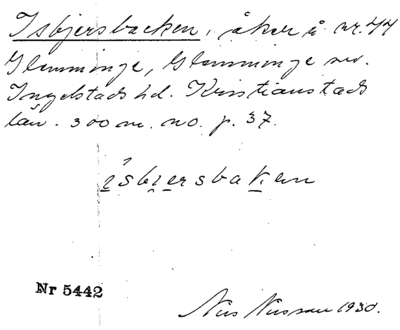 Isbjersbacken, åker å nr. 44
Glemminge, Glemminge sn.
Ingelstads hd. Kristianstads
län. 300 m. no. p. 37.
isbjersbaken
Nr 5442
Nils Nilsson 1930.